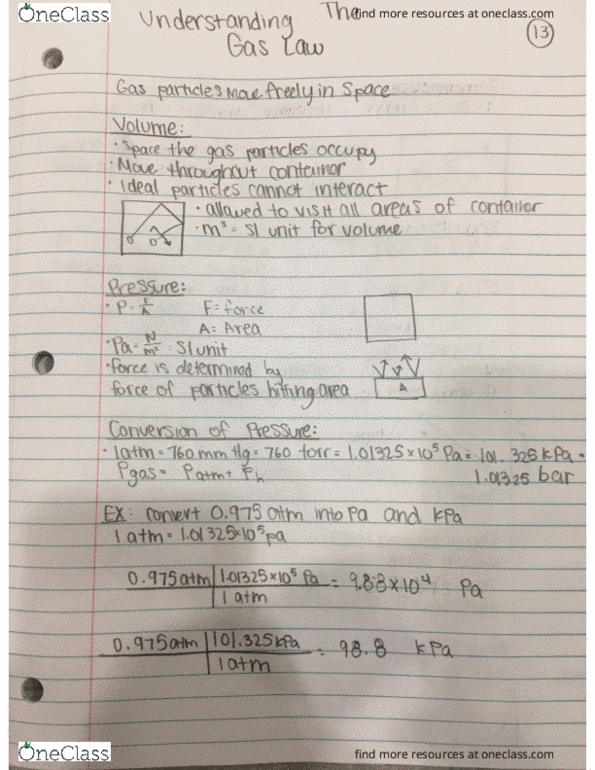 OneClass
find more resources at oneclass.com
Understanding The
Gas Law
13
Gas particles move freely in Space
Volume:
· Space the gas particles occupy
· Move throughout container
· Ideal particles cannot interact
· allowed to visit all areas of container
· m³ = SI unit for volume
Pressure:
· P = F/A F = force
A = Area
· Pa = N/m² = SI unit
· force is determined by
force of particles hitting area
A
Conversion of Pressure:
· 1atm = 760 mm Hg = 760 torr = 1.01325 × 10⁵ Pa = 101.325 kPa =
1.01325 bar
Pgas = Patm + Ph
EX: convert 0.975 atm into Pa and kPa
1 atm = 1.01325×10⁵ pa
0.975 atm | 1.01325×10⁵ Pa = 9.88×10⁴ Pa
1 atm
0.975 atm | 101.325 kPa = 98.8 kPa
1 atm
OneClass
find more resources at oneclass.com